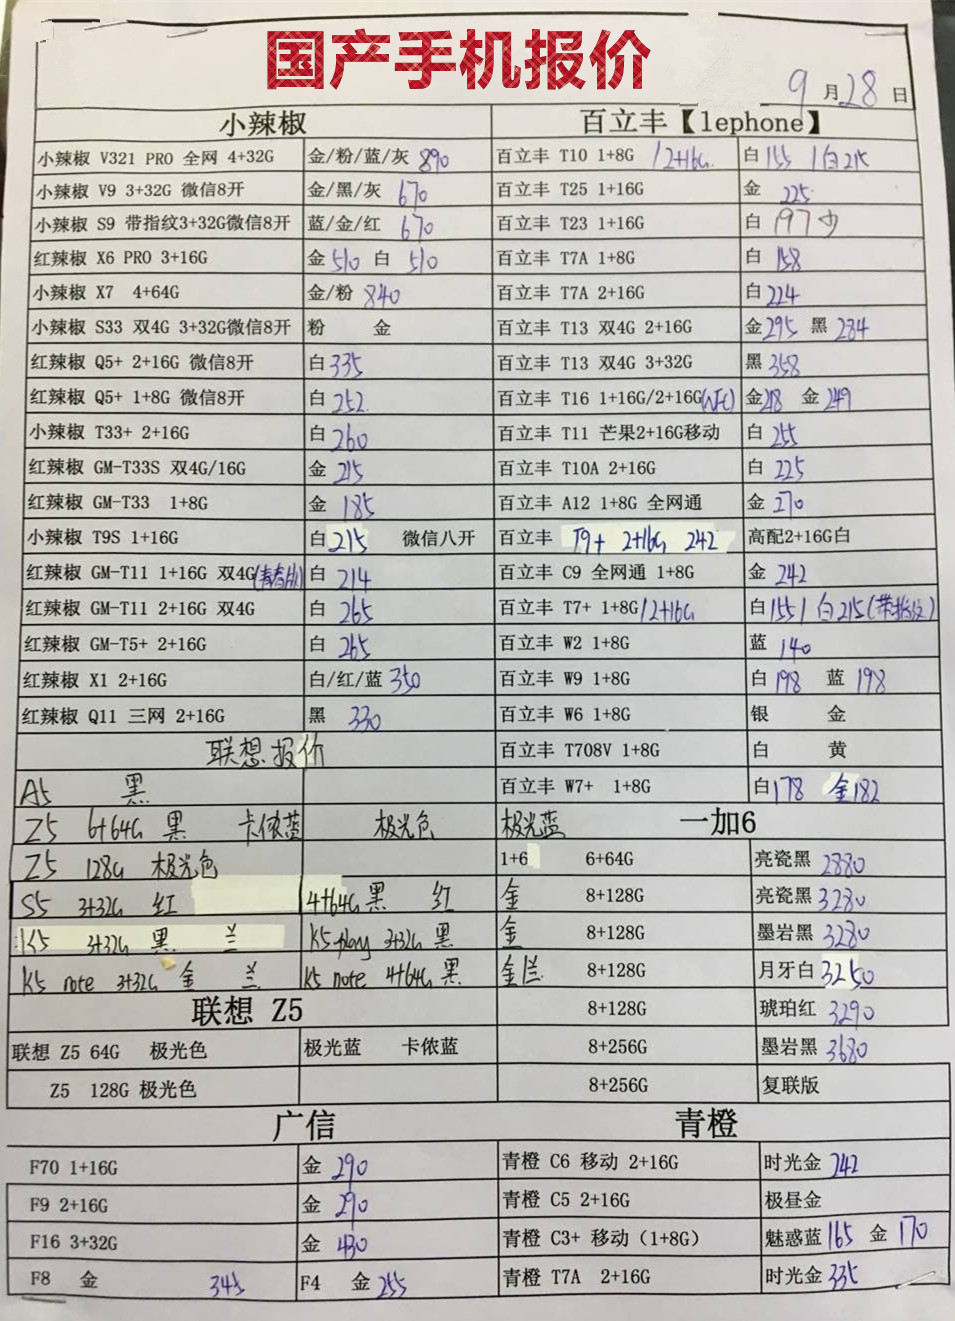 国产手机报价
9月28日
小辣椒 百立丰【lephone】
小辣椒 V321 PRO 全网 4+32G 金/粉/蓝/灰 890 百立丰 T10 1+8G / 2+16G 白155 / 白215
小辣椒 V9 3+32G 微信8开 金/黑/灰 670 百立丰 T25 1+16G 金 225
小辣椒 S9 带指纹3+32G微信8开 蓝/金/红 670 百立丰 T23 1+16G 白 197 少
红辣椒 X6 PRO 3+16G 金510 白 510 百立丰 T7A 1+8G 白 158
小辣椒 X7 4+64G 金/粉 840 百立丰 T7A 2+16G 白224
小辣椒 S33 双4G 3+32G微信8开 粉 金 百立丰 T13 双4G 2+16G 金295 黑 284
红辣椒 Q5+ 2+16G 微信8开 白335 百立丰 T13 双4G 3+32G 黑 358
红辣椒 Q5+ 1+8G 微信8开 白 252 百立丰 T16 1+16G/2+16G 金218 金 249
小辣椒 T33+ 2+16G 白260 百立丰 T11 芒果2+16G移动 白 255
红辣椒 GM-T33S 双4G/16G 金 215 百立丰 T10A 2+16G 白 225
红辣椒 GM-T33 1+8G 金 185 百立丰 A12 1+8G 全网通 金 270
小辣椒 T9S 1+16G 白215 微信八开 百立丰 T9+ 2+16G 242 高配2+16G白
红辣椒 GM-T11 1+16G 双4G(青春版) 白 214 百立丰 C9 全网通 1+8G 金 242
红辣椒 GM-T11 2+16G 双4G 白 265 百立丰 T7+ 1+8G / 2+16G 白155 / 白215(带指纹)
红辣椒 GM-T5+ 2+16G 白 265 百立丰 W2 1+8G 蓝 140
红辣椒 X1 2+16G 白/红/蓝 350 百立丰 W9 1+8G 白 198 蓝 198
红辣椒 Q11 三网 2+16G 黑 330 百立丰 W6 1+8G 银 金
联想报价 百立丰 T708V 1+8G 白 黄
A5 黑 百立丰 W7+ 1+8G 白178 金182
Z5 6+64G 黑 卡侬蓝 极光色 极光蓝 一加6
Z5 128G 极光色 1+6 6+64G 亮瓷黑 2880
S5 3+32G 红 4+64G 黑 红 金 8+128G 亮瓷黑 3280
K5 3+32G 黑 兰 K5 play 3+32G 黑 金 8+128G 墨岩黑 3280
K5 note 3+32G 金 兰 K5 note 4+64G 黑 金 兰 8+128G 月牙白 3250
联想 Z5 8+128G 琥珀红 3290
联想 Z5 64G 极光色 极光蓝 卡侬蓝 8+256G 墨岩黑 3680
Z5 128G 极光色 8+256G 复联版
广信 青橙
F70 1+16G 金 290 青橙 C6 移动 2+16G 时光金 242
F9 2+16G 金 290 青橙 C5 2+16G 极昼金
F16 3+32G 金 430 青橙 C3+ 移动（1+8G） 魅惑蓝 165 金 170
F8 金 345 F4 金 255 青橙 T7A 2+16G 时光金 335